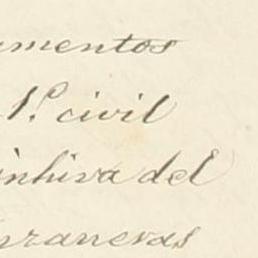 umentos
1.º civil
inhiva del
nzaneras